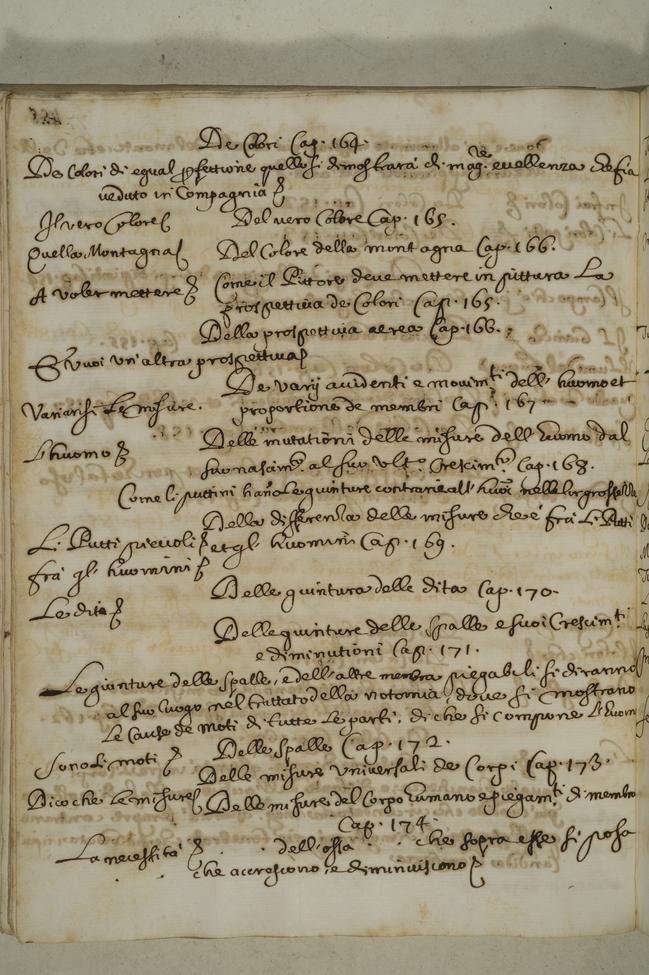 De Colori Cap. 164.
De Colori di egual pfettione quello si dimostrarà di mag.re eccellenza che fia
veduto in Compagnia
Il vero Colore Del vero Colore Cap. 165.
Quella Montagna Del Colore della montagna Cap. 166.
A voler mettere Come il Pittore deve mettere in pittura La
prospettiva de Colori Cap. 165.
Della prospettiva aerea Cap. 166.
Vuoi un'altra prospettiva
De varij accidenti e movim.ti dell' huomo et
Variansi Le misure. proportione de membri Cap. 167
Delle mutationi delle misure dell' huomo dal
L'huomo suo nascim.to al suo ult.o Crescim.to Cap. 168.
Come li puttini hano le giunture contrarie all' huoi nelle lor grossezza
Della differenza delle misure che è frà Li Putti
Li Putti piccoli et gl' huomini Cap. 169.
frà gl' huomini
Delle giuntura delle dita Cap. 170.
Le dita
Delle giunture delle spalle e suoi Crescim.ti
e diminutioni Cap. 171.
Le gionture delle spalle, e dell' altre membra piegabili si diranno
al suo luogo nel trattato della notomia, dove si mostrano
le Cause de moti di tutte Le parti, di che si compone L'huom
Delle Spalle Cap. 172.
Sono Li moti
Delle misure Universali de Corpi Cap. 173.
Dico che Le misure Delle misure del Corpo humano e piegam.ti di membro
Cap. 174.
La necessità dell'ossa che sopra esse si posa
che accrescono, e diminuiscono